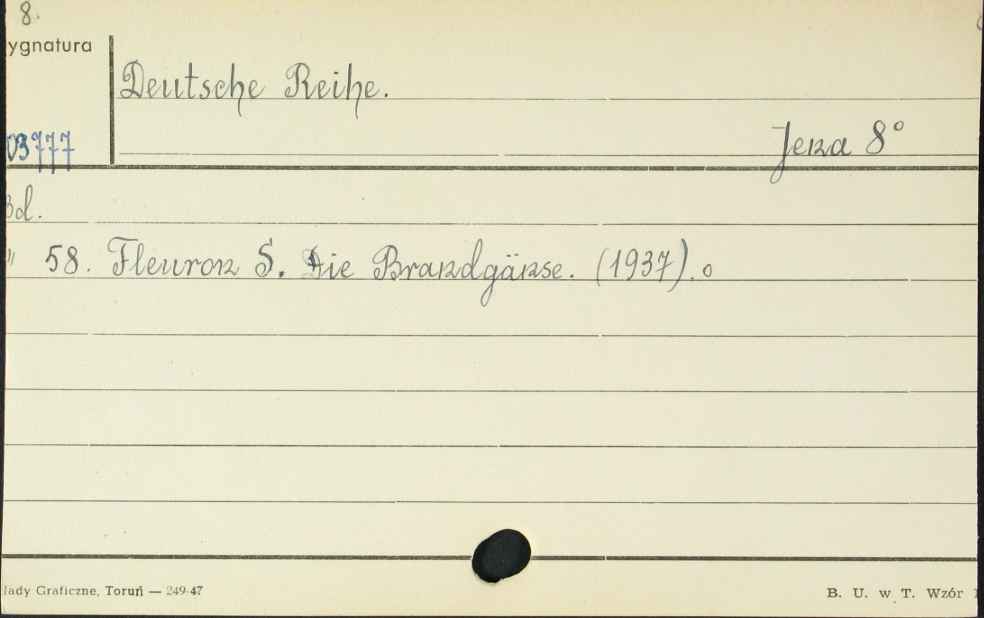 8.
ygnatura
Deutsche Reihe.
03777
Jena 8°
Bd.
" 58. Fleuron S. Die Brandgänse. (1937).
łady Graficzne, Toruń — 249-47
B. U. w T. Wzór